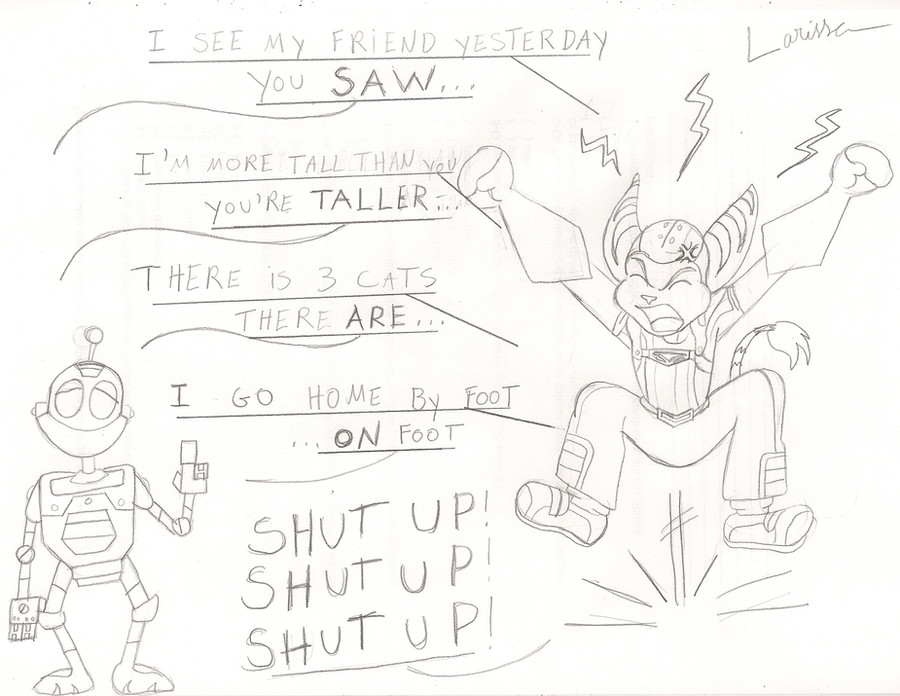 Larissa
I SEE MY FRIEND YESTERDAY
YOU SAW...
I'M MORE TALL THAN YOU
YOU'RE TALLER...
THERE IS 3 CATS
THERE ARE...
I GO HOME BY FOOT
...ON FOOT
SHUT UP!
SHUT UP!
SHUT UP!